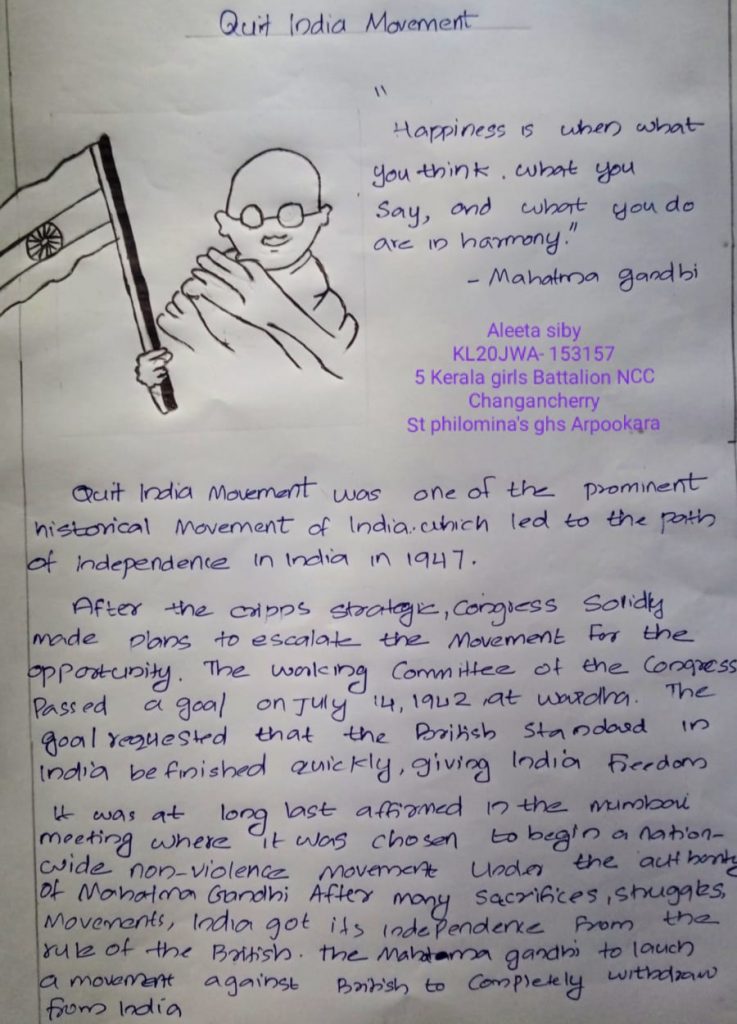 Quit India Movement
"
Happiness is when what
you think. what you
Say, and what you do
are in harmony."
- Mahatma gandhi
Aleeta siby
KL20JWA- 153157
5 Kerala girls Battalion NCC
Changancherry
St philomina's ghs Arpookara
Quit India Movement was one of the prominent
historical Movement of India. which led to the path
of independence in India in 1947.
After the cripps strategic, Congress Solidly
made plans to escalate the Movement For the
opportunity. The working Committee of the Congress
Passed a goal on July 14, 1942 at wardha. The
goal requested that the British Standard in
India be finished quickly, giving India Freedom
It was at long last affirmed in the mumbai
meeting where it was chosen to begin a nation-
wide non-violence movement Under the authority
of Mahatma Gandhi After many Sacrifices, struggles,
Movements, India got its independence From the
rule of the British. the Mahatama gandhi to lauch
a movement against British to Completely withdraw
from India